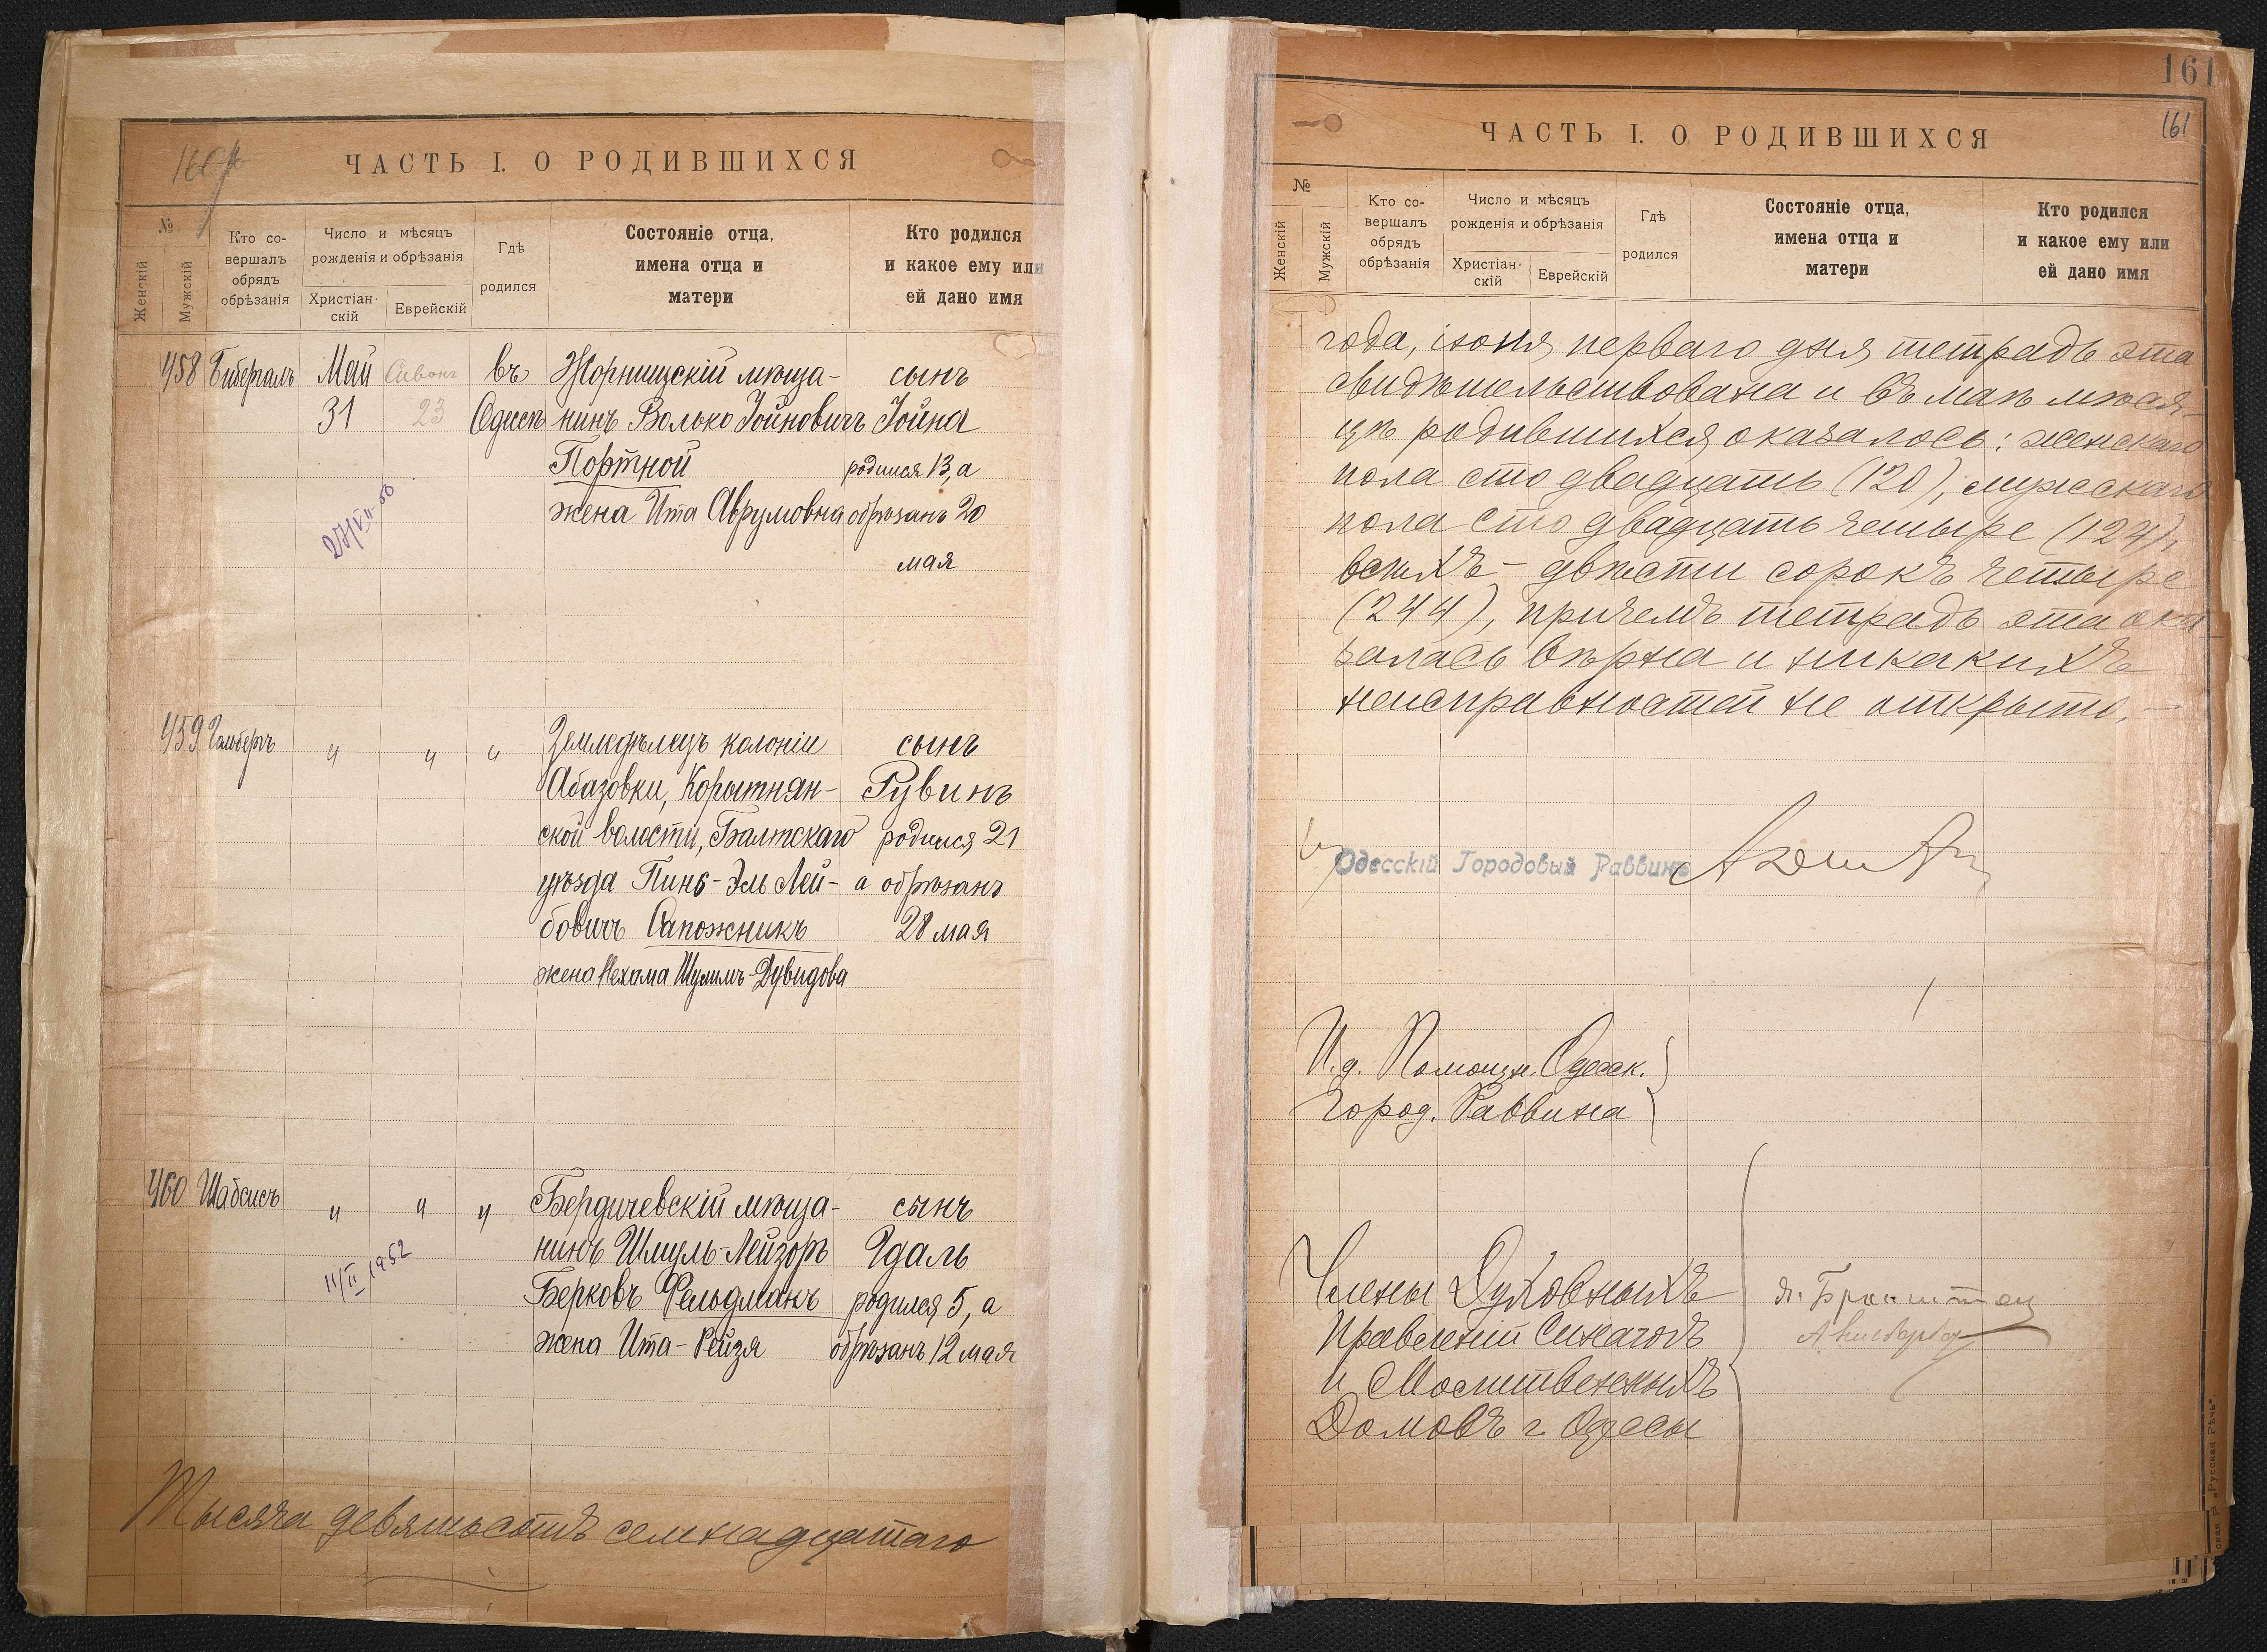 160
ЧАСТЬ I. О РОДИВШИХСЯ
№
Женскій
Мужскій
Кто со-
вершалъ
обрядъ
обрѣзанія
Число и мѣсяцъ
рожденія и обрѣзанія
Христіан-
скій
Еврейскій
Гдѣ
родился
Состояніе отца,
имена отца и
матери
Кто родился
и какое ему или
ей дано имя
458 Бибергалъ Май Сивонъ въ Жорнищскій мѣща- сынъ
31 23 Одессѣ нинъ Волько Іойновичъ Іойна
Портной родился 13, а
жена Ита Аврумовна обрѣзанъ 20
мая
459 Гольберъ " " " Земледѣлецъ колоніи сынъ
Абазовки, Корытнян- Рувинъ
ской волости, Балтскаго родился 21
уѣзда Пинс-Эль Лей- а обрѣзанъ
бовичъ Сапожникъ 28 мая
жена Нехама Шулимъ-Дувидова
460 Шабсисъ " " " Бердичевскій мѣща- сынъ
нинъ Шмуль-Лейзоръ Эдаль
11/II 1952
Берковъ Фельдманъ родился 5, а
жена Ита-Рейзя обрѣзанъ 12 мая
Тысяча девятьсотъ семнадцатаго
161
161
ЧАСТЬ I. О РОДИВШИХСЯ
№
Женскій
Мужскій
Кто со-
вершалъ
обрядъ
обрѣзанія
Число и мѣсяцъ
рожденія и обрѣзанія
Христіан-
скій
Еврейскій
Гдѣ
родился
Состояніе отца,
имена отца и
матери
Кто родился
и какое ему или
ей дано имя
года, іюня перваго дня тетрадь эта
свидѣтельствована и въ маѣ мѣся-
цѣ родившихся оказалось: женскаго
пола сто двадцать (120), мужскаго
пола сто двадцать четыре (124),
всѣхъ - двѣсти сорокъ четыре
(244), причемъ тетрадь эта ока-
залась вѣрна и никакихъ
неисправностей не открыто. -
Одесскій Городовый Раввинъ
И.д. Помощн. Одесск.
Город. Раввина
Члены Духовныхъ
Правленій Синагогъ
и Молитвенныхъ
Домовъ г. Одессы